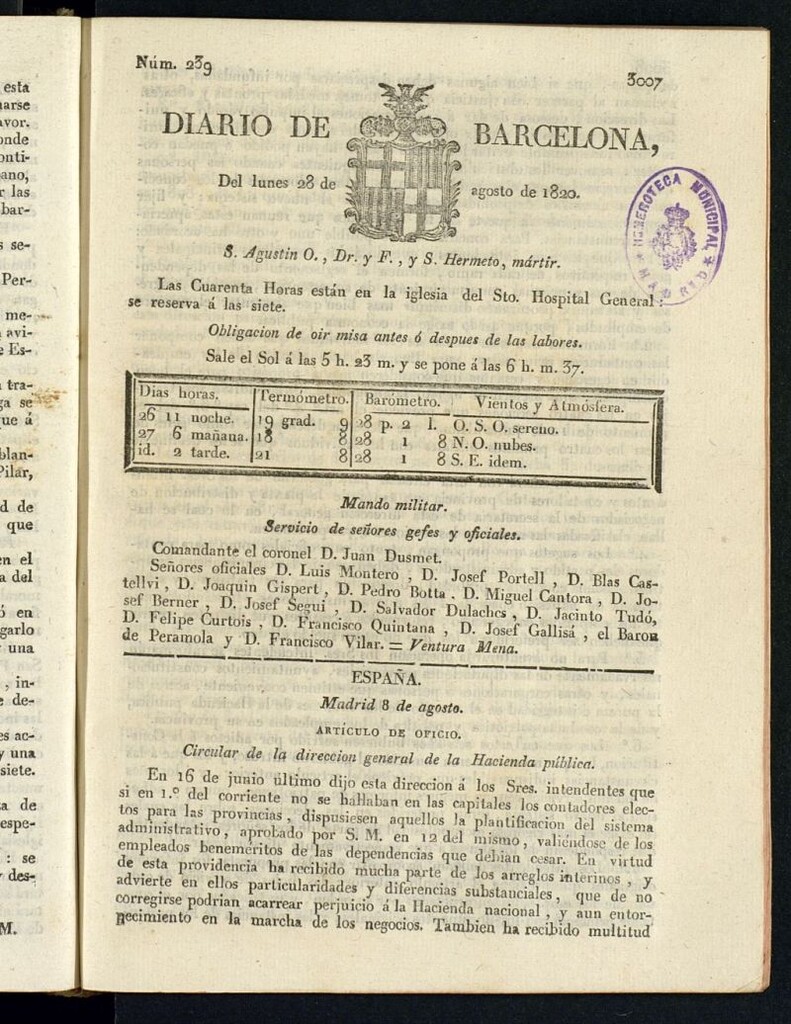 esta
marse
avor.
onde
onti-
ano,
r las
bar-
s se-
Per-
me-
avi-
e Es-
tra-
ga se
que á
blan-
Pilar,
d de
que
en el
a del
ó en
garlo
una
, in-
e de-
es ac-
y una
siete.
a de
espe-
: se
des-
M.
Núm. 239
3007
DIARIO DE BARCELONA,
Del lunes 28 de agosto de 1820.
HEMEROTECA MUNICIPAL
* MADRID *
S. Agustin O., Dr. y F., y S. Hermeto, mártir.
Las Cuarenta Horas están en la iglesia del Sto. Hospital General:
se reserva á las siete.
Obligacion de oir misa antes ó despues de las labores.
Sale el Sol á las 5 h. 23 m. y se pone á las 6 h. m. 37.
Dias horas. Termómetro. Barómetro. Vientos y Atmósfera.
26 11 noche. 19 grad. 9 28 p. 2 l. O. S. O. sereno.
27 6 mañana. 18 8 28 1 8 N. O. nubes.
id. 2 tarde. 21 8 28 1 8 S. E. idem.
Mando militar.
Servicio de señores gefes y oficiales.
Comandante el coronel D. Juan Dusmet.
Señores oficiales D. Luis Montero, D. Josef Portell, D. Blas Cas-
tellvi, D. Joaquin Gispert, D. Pedro Botta. D. Miguel Cantora, D. Jo-
sef Berner, D. Josef Segui, D. Salvador Dulaches, D. Jacinto Tudó,
D. Felipe Curtois, D. Francisco Quintana, D. Josef Gallisá, el Baron
de Peramola y D. Francisco Vilar. = Ventura Mena.
ESPAÑA.
Madrid 8 de agosto.
ARTÍCULO DE OFICIO.
Circular de la direccion general de la Hacienda pública.
En 16 de junio último dijo esta direccion á los Sres. intendentes que
si en 1.º del corriente no se hallaban en las capitales los contadores elec-
tos para las provincias, dispusiesen aquellos la plantificacion del sistema
administrativo, aprobado por S. M. en 12 del mismo, valiéndose de los
empleados beneméritos de las dependencias que debian cesar. En virtud
de esta providencia ha recibido mucha parte de los arreglos interinos, y
advierte en ellos particularidades y diferencias substanciales, que de no
corregirse podrian acarrear perjuicio á la Hacienda nacional, y aun entor-
pecimiento en la marcha de los negocios. Tambien ha recibido multitud